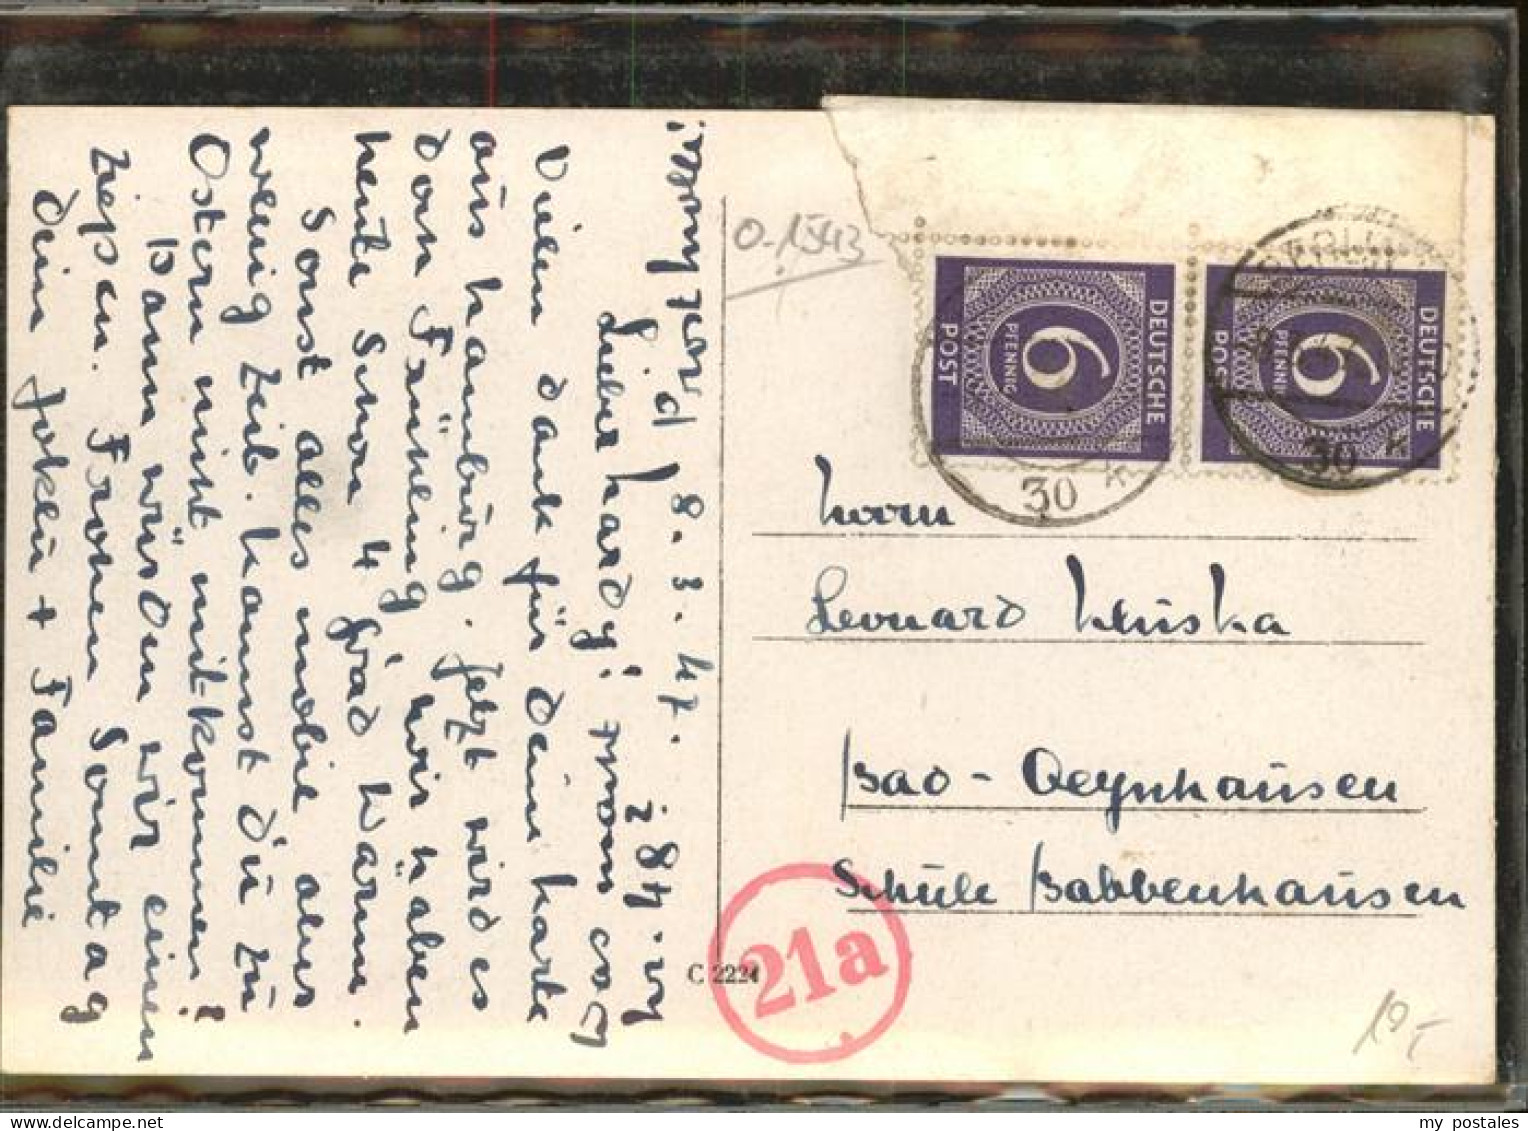 8. 3. 47.
Lieber hardy!
Vielen dank für deine karte
aus hamburg. Jetzt wird es
don Frühling, wir haben
heute schon 4 grad Warm.
Sonst alles mobil aus
wenig Zeit. kannst du zu
Ostern nicht mit-kommen!
Dann würden wir einen
ziepen. Frohen Sonntag
dein Jokeli + Familie
0-1543
DEUTSCHE
POST
6
PFENNIG
DEUTSCHE
POST
6
PFENNIG
BERLIN
30
30
herrn
Leonard Kluska
Bad-Oeynhausen
Schule Babbenhausen
21a
C 2224
my postales